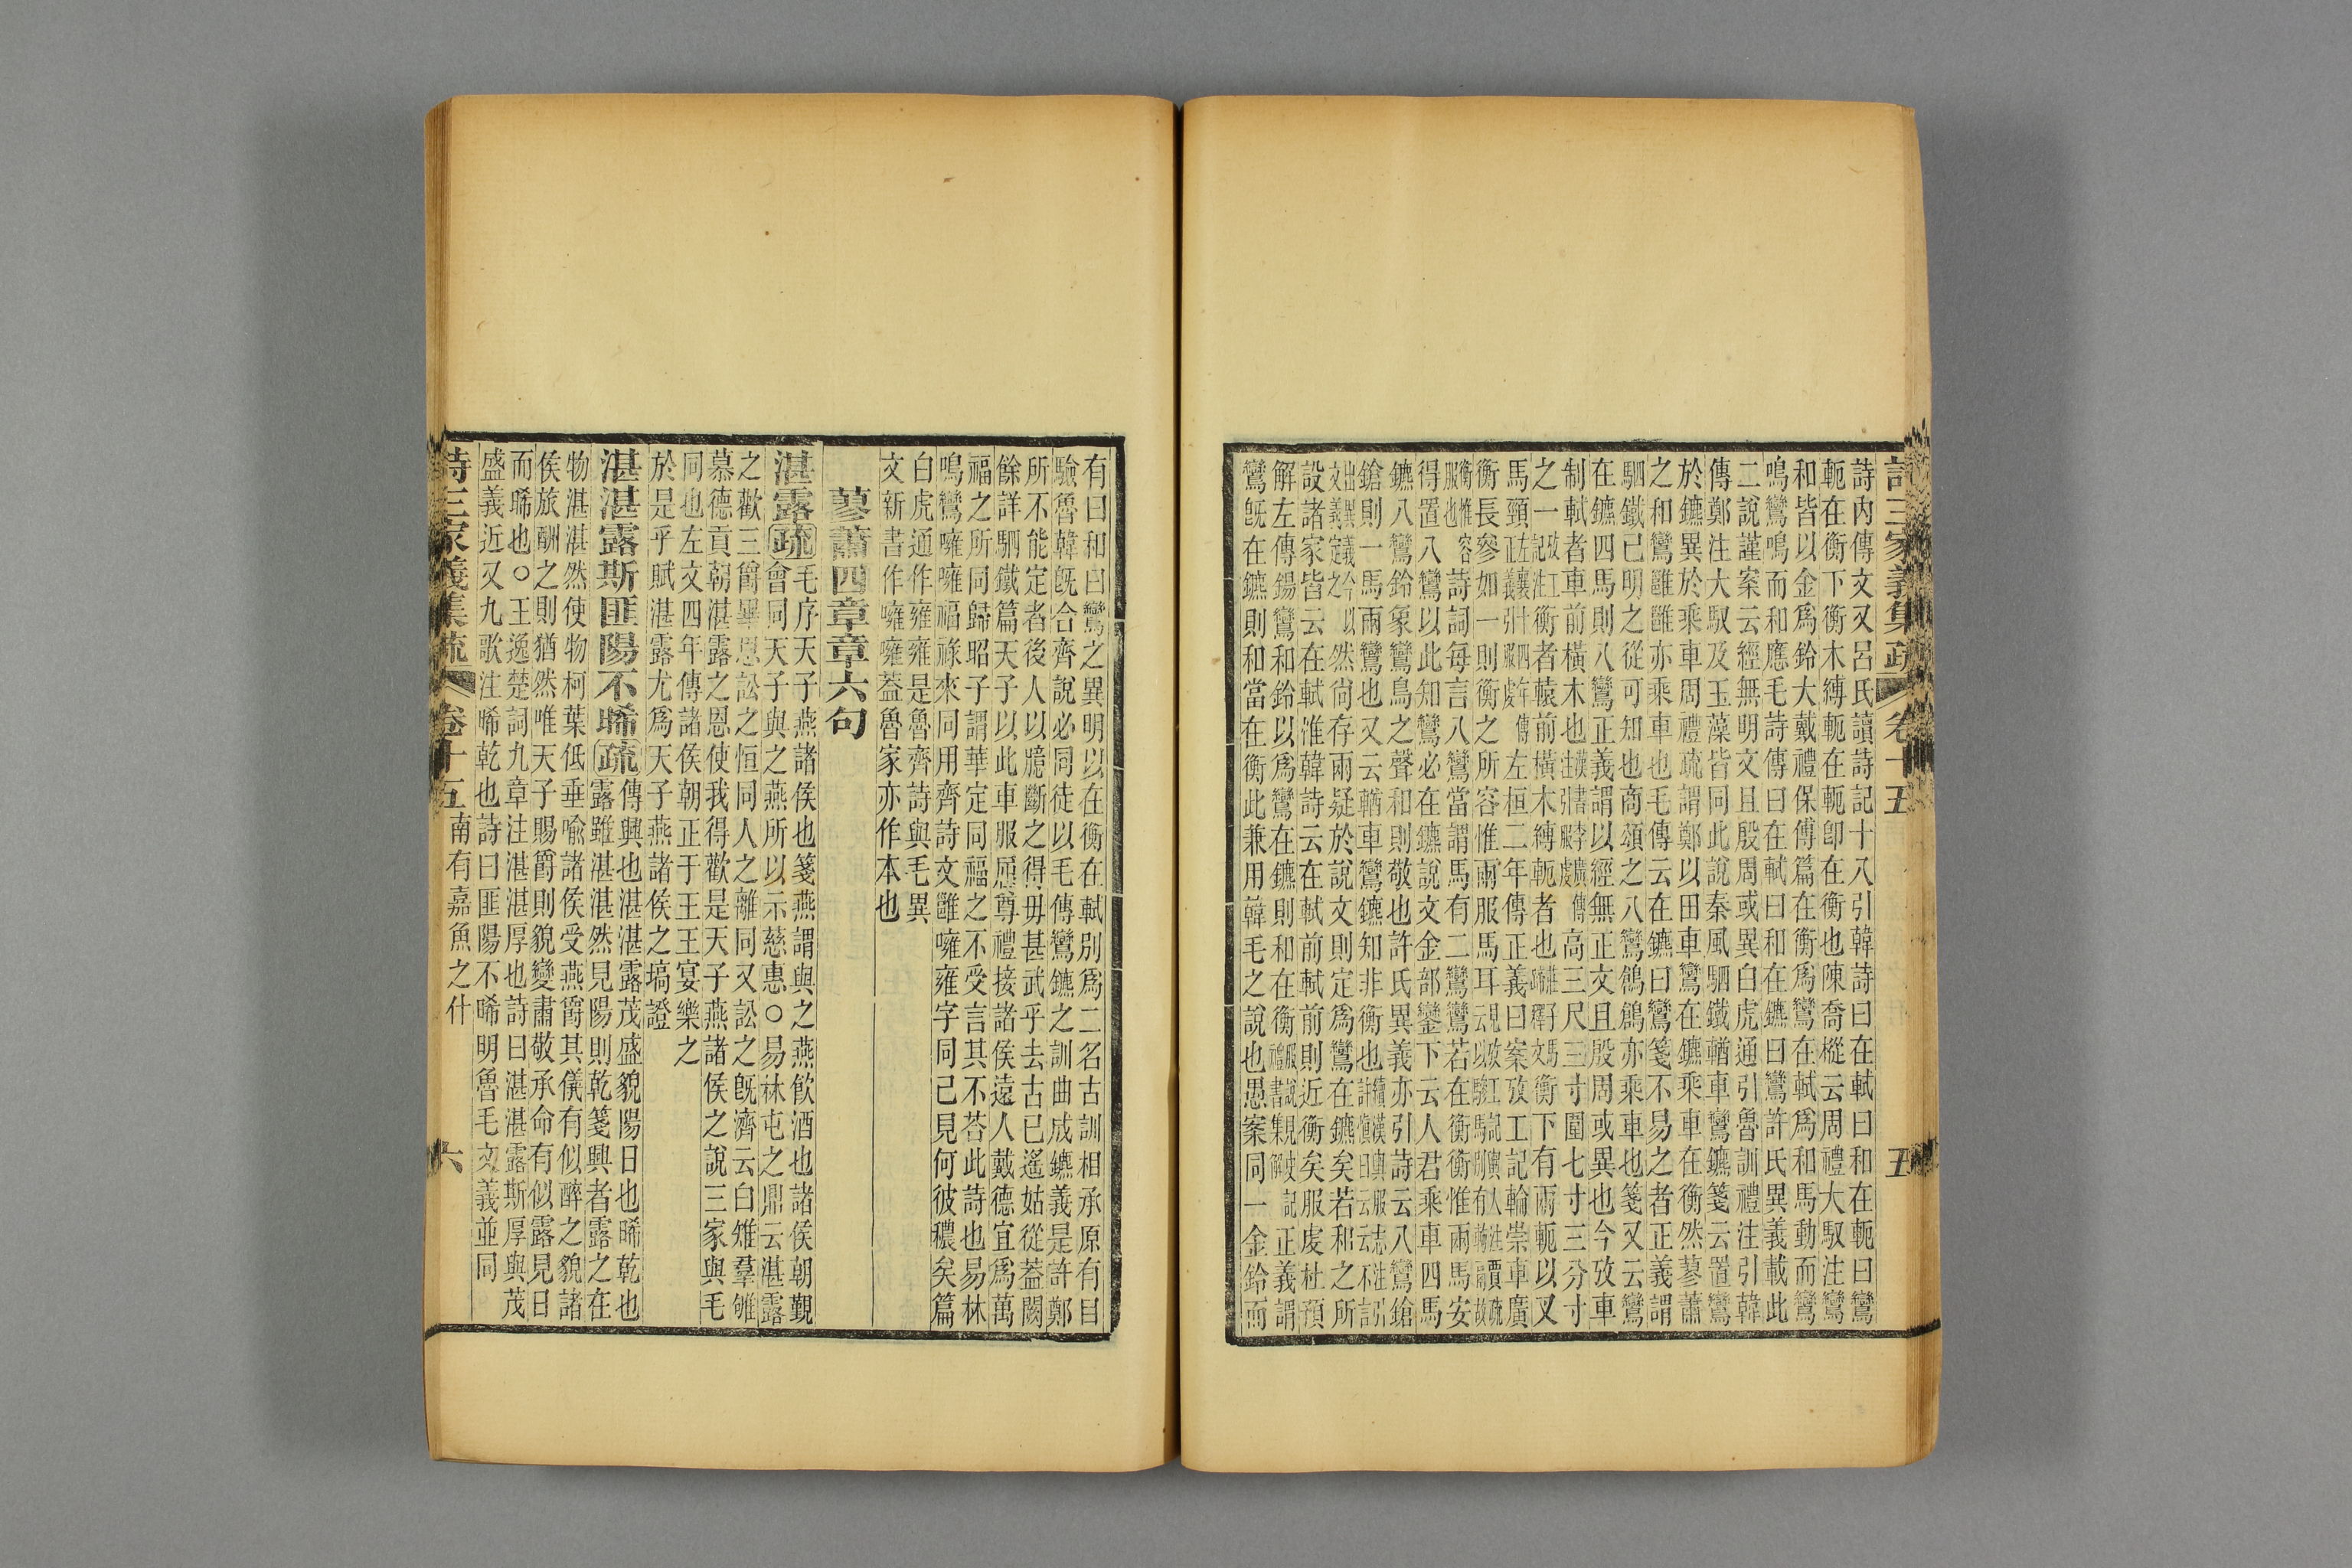 詩內傳文又呂氏讀詩記十八引韓詩曰在軾曰和在軛曰鸞
軛在衡下衡木縛軛在軛卽在衡也陳喬樅云周禮大馭注鸞
和皆以金爲鈴大戴禮保傅篇在衡爲鸞在軾爲和馬動而鸞
鳴鸞鳴而和應毛詩傳曰在軾曰和在鑣曰鸞許氏異義載此
二說謹案云經無明文且殷周或異白虎通引魯訓禮注引韓
傳鄭注大馭及玉藻皆同此說秦風駟鐵輶車鸞鑣箋云置鸞
於鑣異於乘車周禮疏謂鄭以田車鸞在鑣乘車在衡然蓼蕭
之和鸞雝雝亦乘車也毛傳云在鑣曰鸞箋不易之者正義謂
駟鐵已明之從可知也商頌之八鸞鶬鶬亦乘車也箋又云鸞
在鑣四馬則八鸞正義謂以經無正文且殷周或異也今攷車
制軾者車前橫木也續漢書李賢注引服虔傳高三尺三寸圍七寸三分寸
之一攷工記注衡者轅前橫木縛軛者也莊子馬蹄釋文衡下有兩軛以叉
馬頸左襄十四年傳正義引服虔左桓二年傳正義曰案攷工記輪崇車廣
衡長參如一則衡之所容惟兩服馬耳
衡惟容服也詩詞每言八鸞當謂馬有二鸞鸞若在衡衡惟兩馬安
得置八鸞以此知鸞必在鑣說文金部鑾下云人君乘車四馬
鑣八鸞鈴象鸞鳥之聲和則敬也許氏異義亦引詩云八鸞鎗
鎗則一馬兩鸞也又云輶車鸞鑣知非衡也
文出異義今定之以然尙存兩疑於說文則定爲鸞在鑣矣若和之所
設諸家皆云在軾淮韓詩云在軾前軾前則近衡矣服虔杜預
解左傳鍚鸞和鈴以爲鸞在鑣則和在衡正義謂
鸞旣在鑣則和當在衡此兼用韓毛之說也愚案同一金鈴而
詩三家義集疏 卷十五 五
有曰和曰鸞之異明以在衡在軾別爲二名古訓相承原有目
驗魯韓旣合齊說必同徒以毛傳鸞鑣之訓曲成鑣義是許鄭
所不能定者後人以臆斷之得毋甚武乎去古已遙姑從葢闕
餘詳駟鐵篇天子以此車服屈尊禮接諸侯遠人戴德宜爲萬
福之所同歸昭子謂華定同福之不受言其不荅此詩也易林
鳴鸞噰噰福祿來同用齊詩文雝噰雍字同已見何彼穠矣篇
白虎通作雍雍是魯齊詩與毛異
文新書作噰噰葢魯家亦作本也
蓼蕭四章章六句
湛露疏毛序天子燕諸侯也箋燕謂與之燕飮酒也諸侯朝覲
會同天子與之燕所以示慈惠○易林屯之鼎云湛露
之歡三爵畢恩訟之恒同人之離同又訟之旣濟云白雉羣雊
慕德貢朝湛露之恩使我得歡是天子燕諸侯之說三家與毛
同也左文四年傳諸侯朝正于王王宴樂之
於是乎賦湛露尤爲天子燕諸侯之塙證
湛湛露斯匪陽不晞疏傳興也湛湛露茂盛貌陽日也晞乾也
露雖湛湛然見陽則乾箋興者露之在
物湛湛然使物柯葉低垂喩諸侯受燕爵其儀有似醉之貌諸
侯旅酬之則猶然唯天子賜爵則貌變肅敬承命有似露見日
而晞也○王逸楚詞九章注湛湛厚也詩曰湛湛露斯厚與茂
盛義近又九歌注晞乾也詩曰匪陽不晞明魯毛文義並同
詩三家義集疏 卷十五 南有嘉魚之什 六